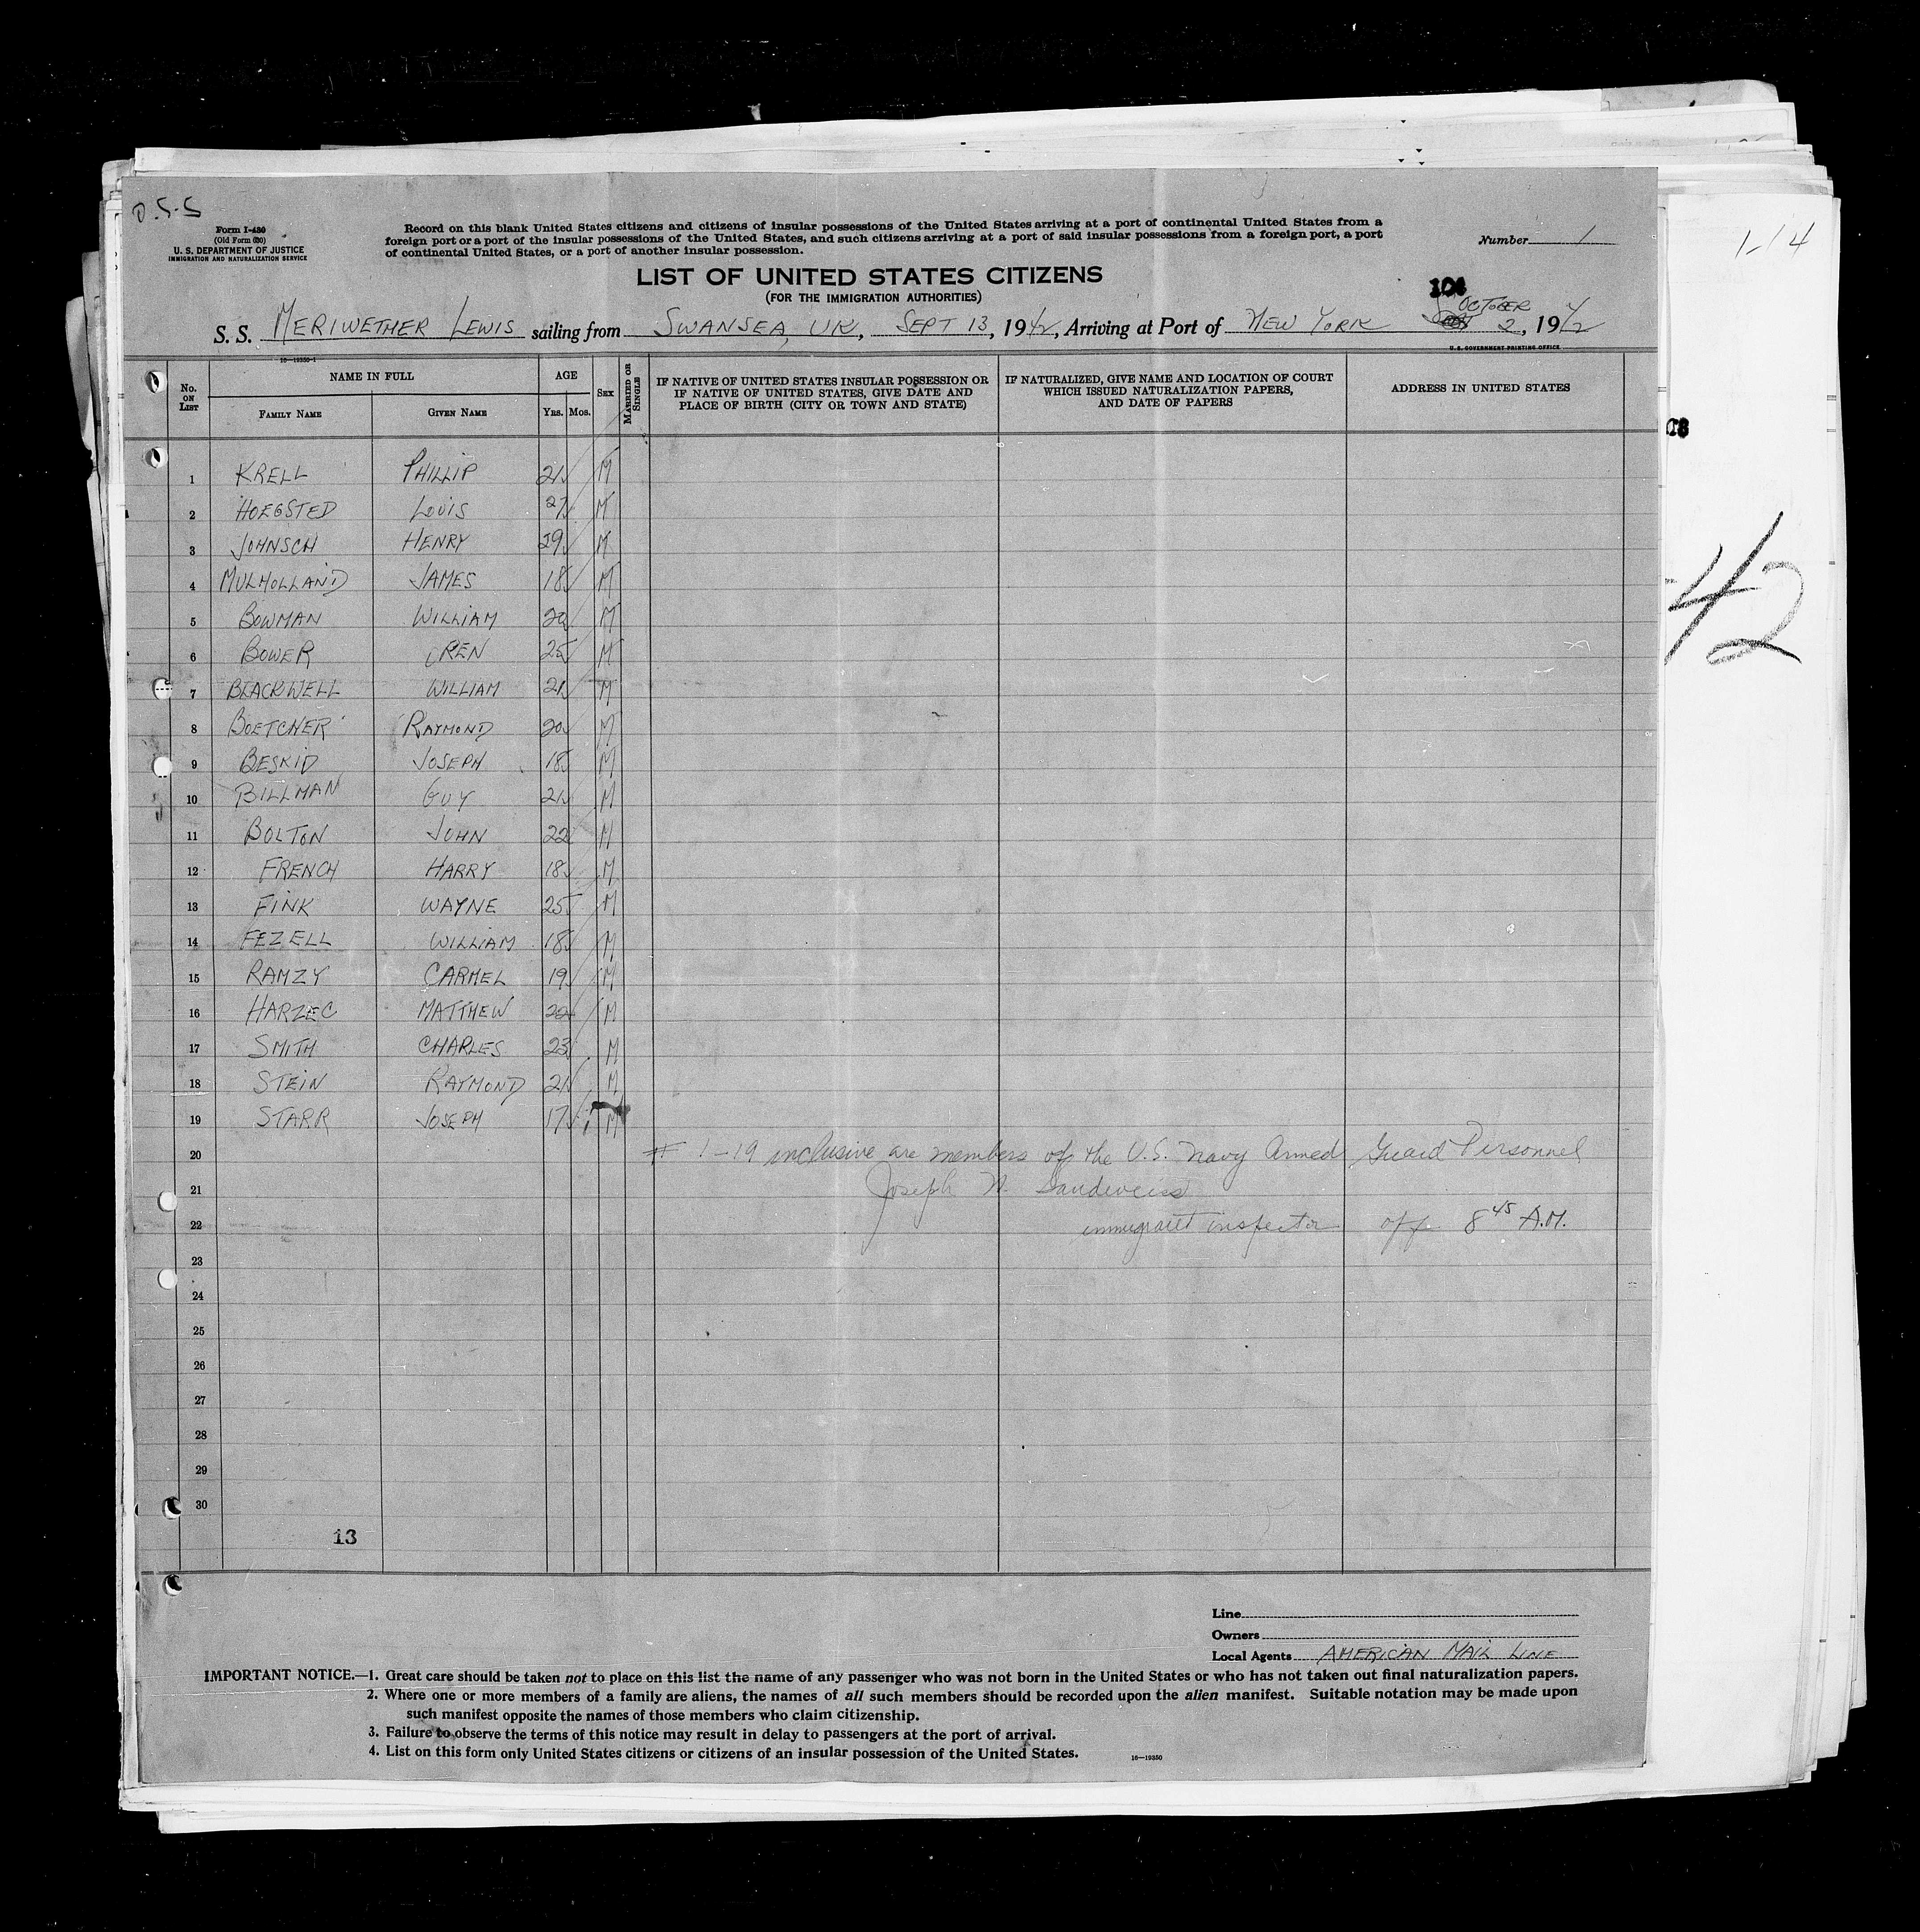 O.S.S
Form I-430
(Old Form 630)
U. S. DEPARTMENT OF JUSTICE
IMMIGRATION AND NATURALIZATION SERVICE
Record on this blank United States citizens and citizens of insular possessions of the United States arriving at a port of continental United States from a
foreign port or a port of the insular possessions of the United States, and such citizens arriving at a port of said insular possessions from a foreign port, a port
of continental United States, or a port of another insular possession.
Number 1
1-14
LIST OF UNITED STATES CITIZENS
(FOR THE IMMIGRATION AUTHORITIES)
S. S. MERIWETHER LEWIS sailing from SWANSEA, UK, SEPT 13, 1942, Arriving at Port of NEW YORK OCTOBER 2, 1942
U. S. GOVERNMENT PRINTING OFFICE
16—19350-1
No. ON LIST NAME IN FULL FAMILY NAME GIVEN NAME AGE Yrs. Mos. SEX MARRIED OR SINGLE
IF NATIVE OF UNITED STATES INSULAR POSSESSION OR
IF NATIVE OF UNITED STATES, GIVE DATE AND
PLACE OF BIRTH (CITY OR TOWN AND STATE)
IF NATURALIZED, GIVE NAME AND LOCATION OF COURT
WHICH ISSUED NATURALIZATION PAPERS,
AND DATE OF PAPERS
ADDRESS IN UNITED STATES
1 KRELL PHILLIP 21 M
2 HOEGSTED LOUIS 27 M
3 JOHNSCH HENRY 29 M
4 MULHOLLAND JAMES 18 M
5 BOWMAN WILLIAM 20 M
6 BOWER OREN 25 M
7 BLACKWELL WILLIAM 21 M
8 BOETCHER RAYMOND 20 M
9 BESKID JOSEPH 18 M
10 BILLMAN GUY 21 M
11 BOLTON JOHN 22 M
12 FRENCH HARRY 18 M
13 FINK WAYNE 25 M
14 FEZELL WILLIAM 18 M
15 RAMZY CARMEL 19 M
16 HARZEC MATTHEW 22 M
17 SMITH CHARLES 23 M
18 STEIN RAYMOND 21 M
19 STARR JOSEPH 17 M
20 # 1-19 inclusive are members of the U.S. Navy Armed Guard Personnel
21 Joseph W. Sandweiss
22 immigrant inspector off 8 45 A.M.
23
24
25
26
27
28
29
30
13
42
Line
Owners
Local Agents AMERICAN MAIL LINE
IMPORTANT NOTICE.—1. Great care should be taken not to place on this list the name of any passenger who was not born in the United States or who has not taken out final naturalization papers.
2. Where one or more members of a family are aliens, the names of all such members should be recorded upon the alien manifest. Suitable notation may be made upon
such manifest opposite the names of those members who claim citizenship.
3. Failure to observe the terms of this notice may result in delay to passengers at the port of arrival.
4. List on this form only United States citizens or citizens of an insular possession of the United States.
16—19350